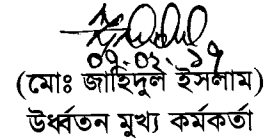 ০৭.০২.১৭
(মোঃ জাহিদুল ইসলাম)
উর্ধ্বতন মুখ্য কর্মকর্তা